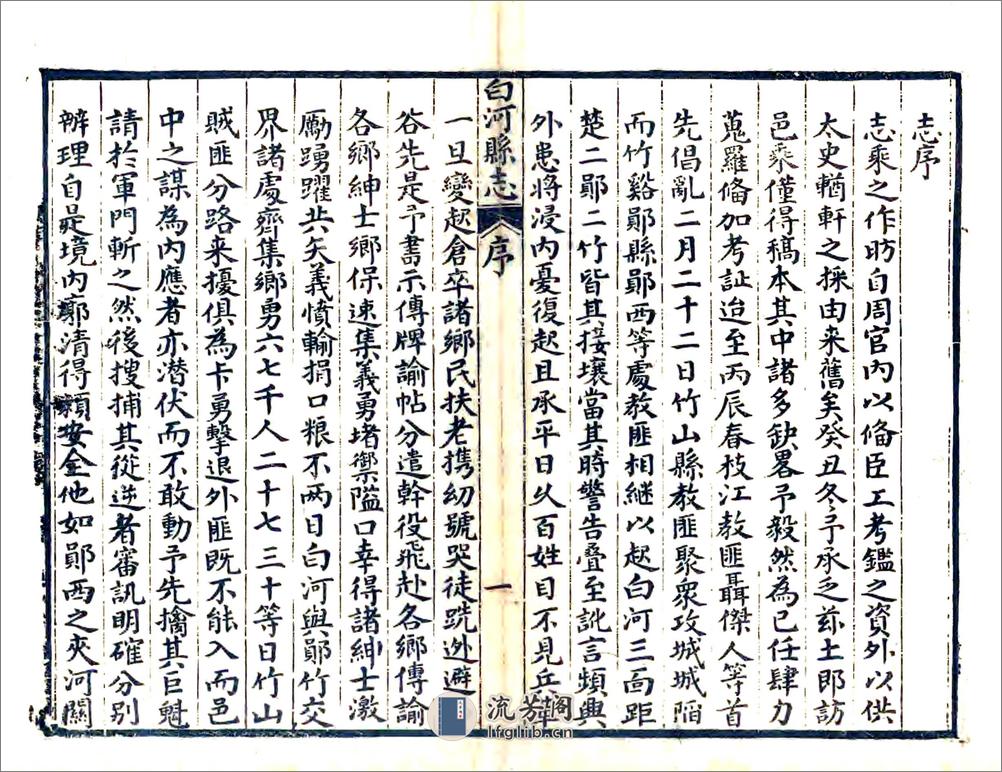 志序
志乘之作昉自周官內以俻臣工考鑑之資外以供
太史輶軒之採由來舊矣癸丑冬予承乏茲土即訪
邑乘僅得稿本其中諸多缺畧予毅然為己任肆力
蒐羅俻加考証迨至丙辰春枝江教匪聶傑人等首
先倡亂二月二十二日竹山縣教匪聚衆攻城城陷
而竹谿鄖縣鄖西等處教匪相継以起白河三面距
楚二鄖二竹皆其接壤當其時警告叠至訛言頻興
外患將浸內憂復起且承平日乆百姓目不見兵革
白河縣志
序
一
一旦變起倉卒諸鄉民扶老携幼號哭徒跣迯避
谷先是予書示傳牌諭帖分遣幹役飛赴各鄉傳諭
各鄉紳士鄉保速集義勇堵禦隘口幸得諸紳士激
勵踴躍共矢義憤輸捐口粮不两日白河與鄖竹交
界諸處齊集鄉勇六七千人二十七三十等日竹山
賊匪分路来擾俱為卡勇擊退外匪既不能入而邑
中之謀為內應者亦潜伏而不敢動予先擒其巨魁
請於軍門斬之然後搜捕其從逆者審訊明確分别
辨理自是境內廓清得頼安全他如鄖西之夾河關
流芳閣
lfglib.cn